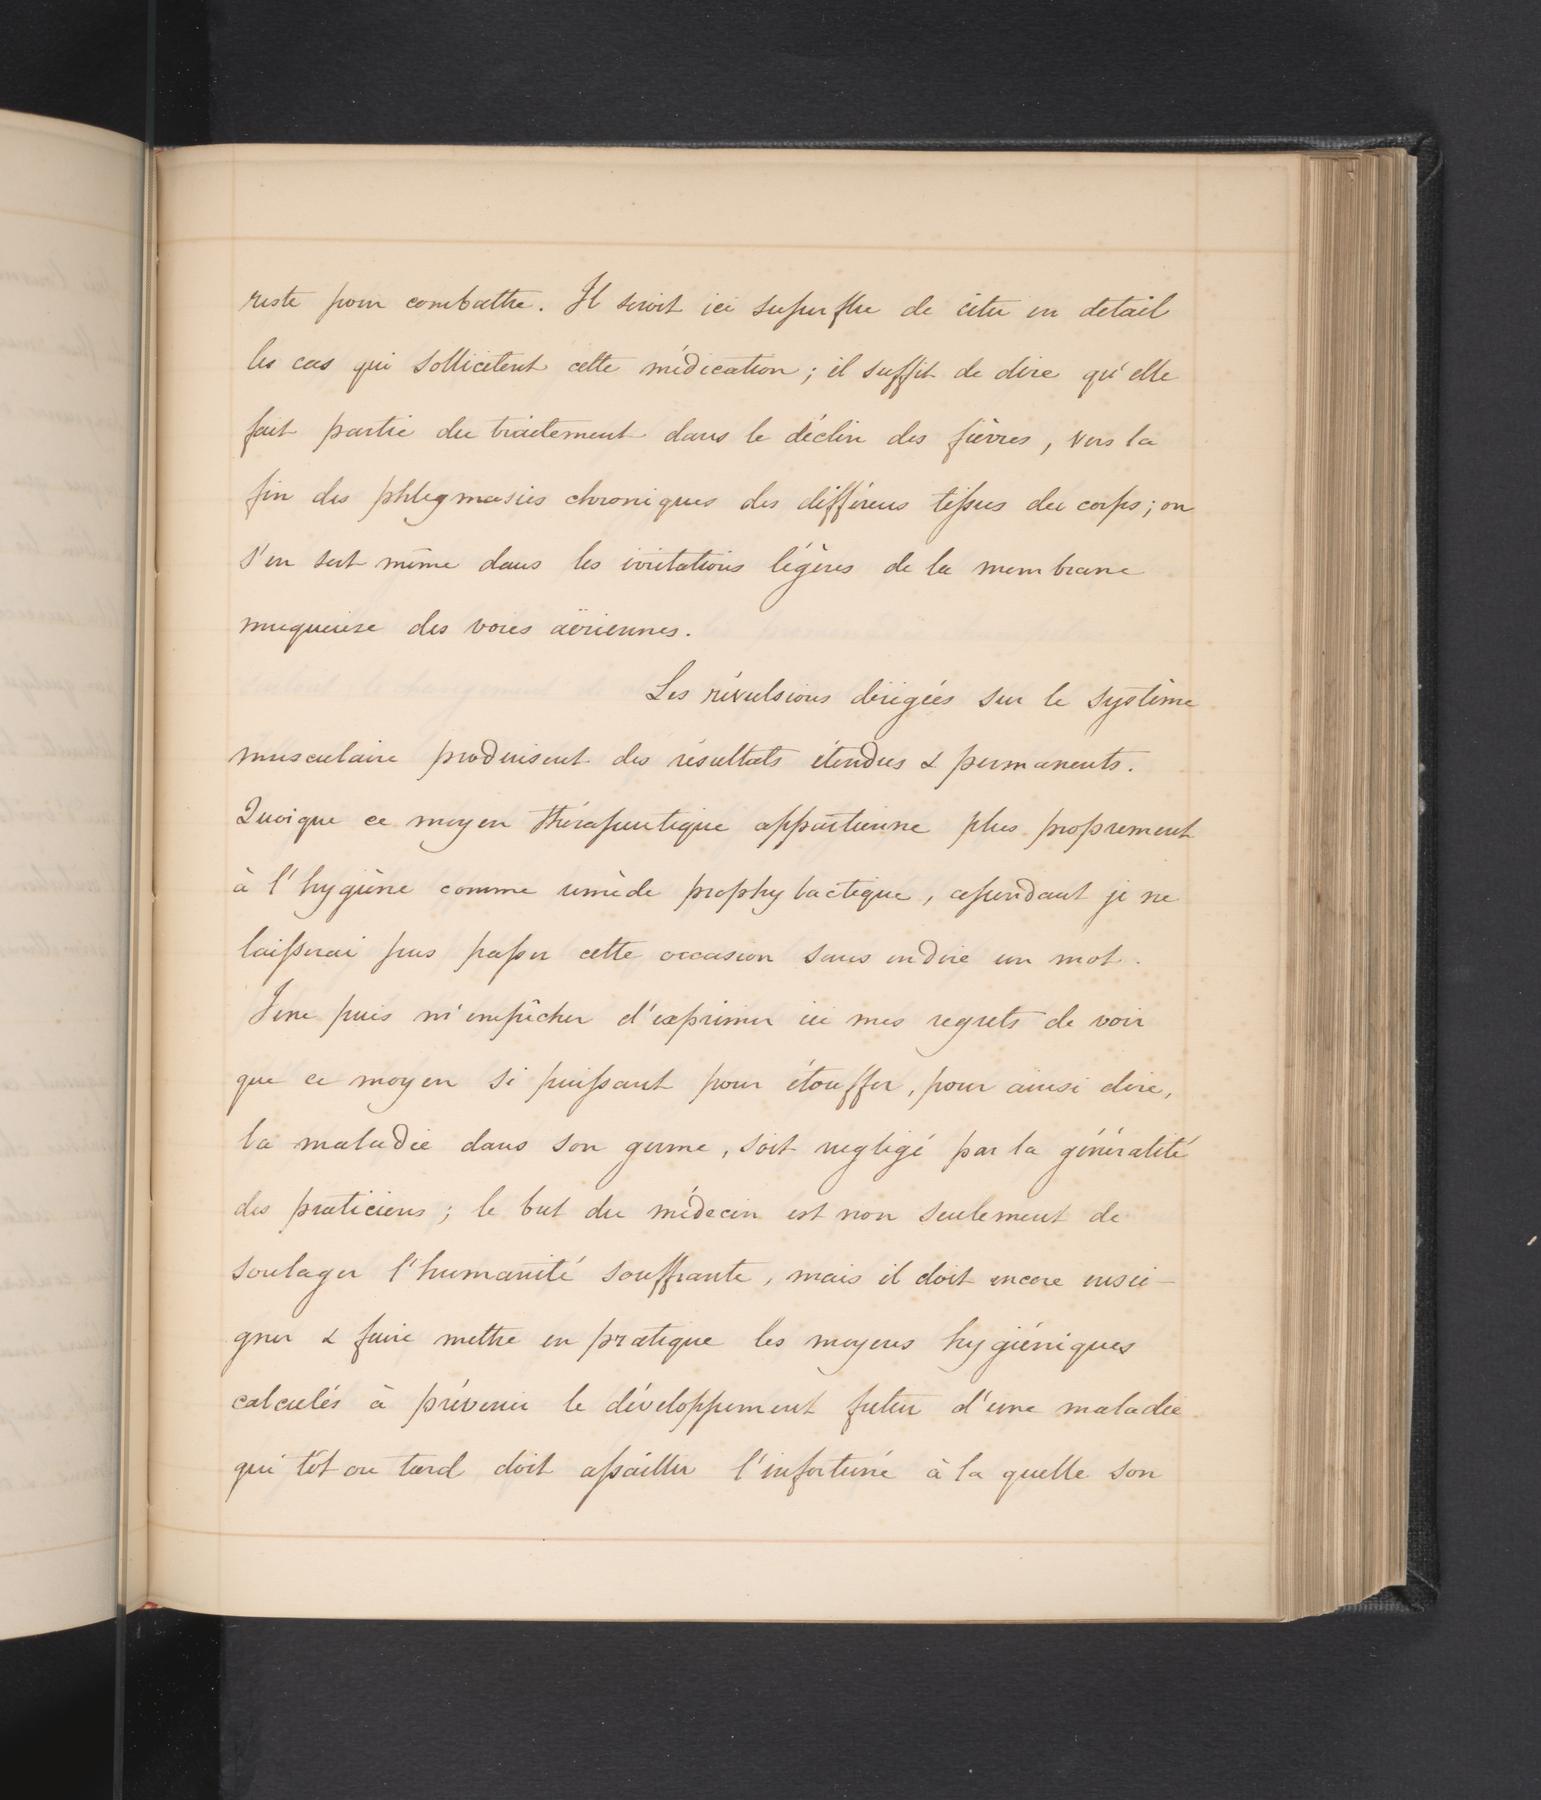 reste pour combattre. Il seroit ici superflu de citer en detail
les cas qui sollicitent cette médication; il suffit de dire qu'elle
fait partie du traitement dans le déclin des fièvres, vers la
fin des phlegmasies chroniques des différens tissus du corps; on
s'en sert même dans les irritations légères de la membrane
muqueuse des voies aëriennes.
Les révulsions dirigées sur le système
musculaire produisent des résultats étendus & permanents.
Quoique ce moyen thérapeutique appartienne plus proprement
à l'hygiène comme remède prophylactique, cependant je ne
laisserai pas passer cette occasion sans en dire un mot.
Je ne puis m'empêcher d'exprimer ici mes regrets de voir
que ce moyen si puissant pour étouffer, pour ainsi dire,
la maladie dans son germe, soit negligé par la généralité
des praticiens; le but du médecin est non seulement de
soulager l'humanité souffrante, mais il doit encore ensei-
gner & faire mettre en pratique les moyens hygiéniques
calculés à prévenir le développement futur d'une maladie
qui tôt ou tard doit assaillir l'infortuné à la quelle son